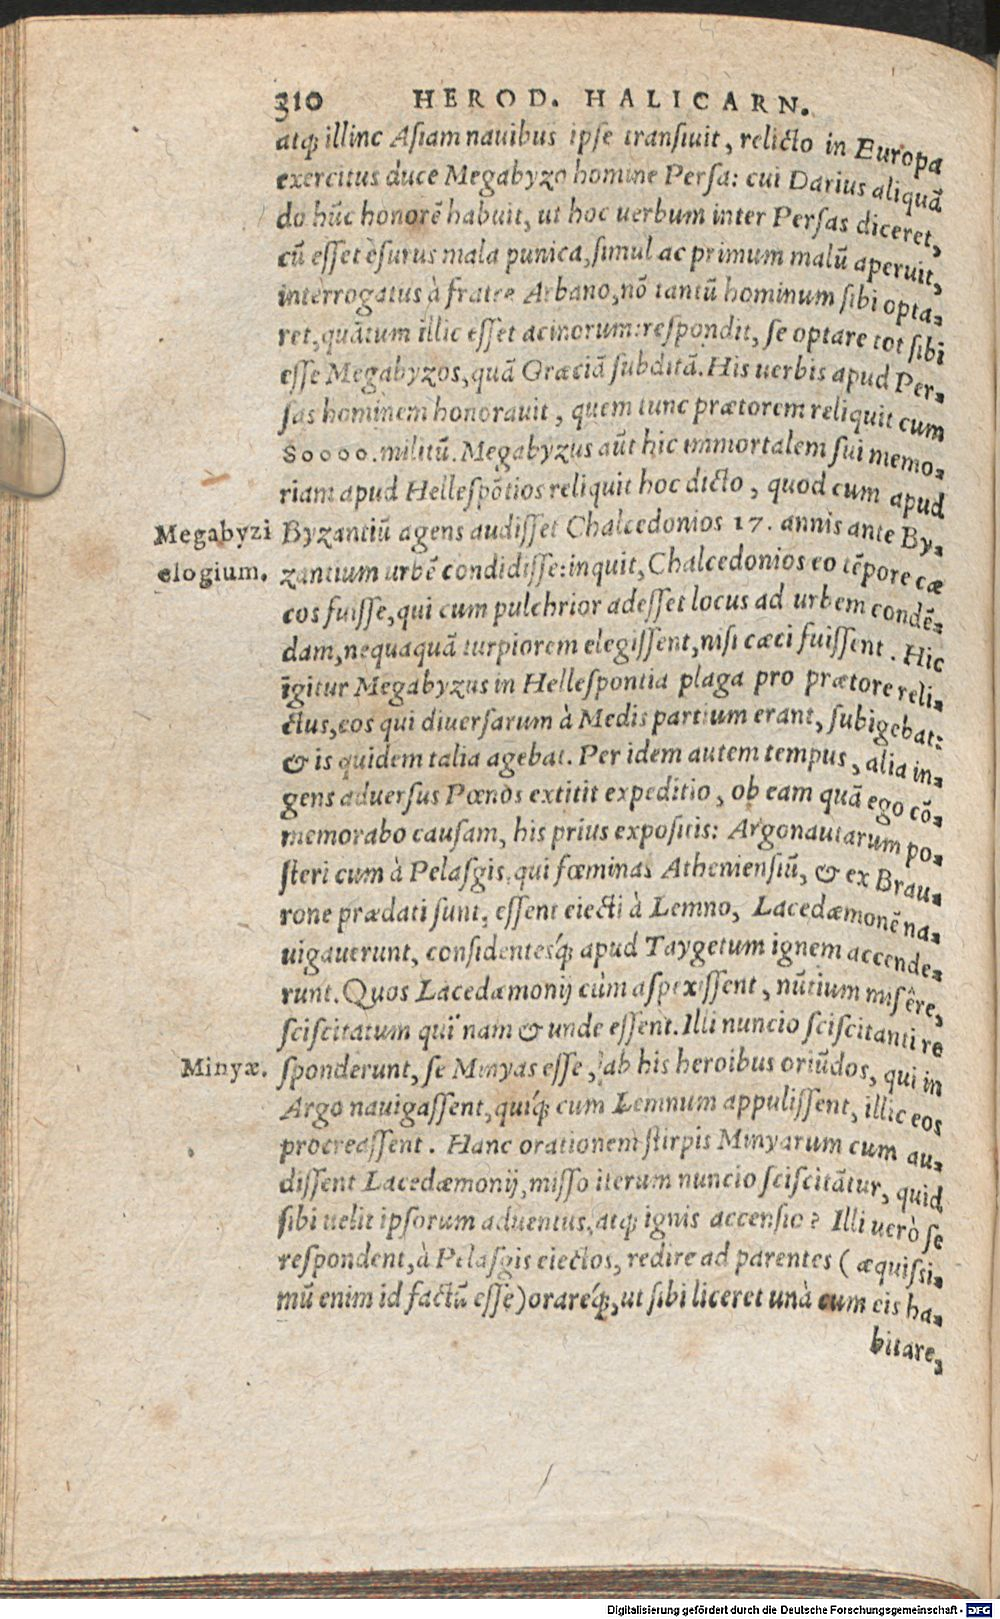 310 HEROD. HALICARN.
atq; illinc Asiam nauibus ipse transiuit, relicto in Europa
exercitus duce Megabyzo homine Persa: cui Darius aliquã
do hũc honorẽ habuit, ut hoc uerbum inter Persas diceret,
cũ esset esurus mala punica, simul ac primum malũ aperuit,
interrogatus à fratre Arbano, nõ tantũ hominum sibi opta-
ret, quãtum illic esset acinorum: respondit, se optare tot sibi
esse Megabyzos, quã Græciã subditã. His uerbis apud Per-
sas hominem honorauit, quem tunc prætorem reliquit cum
80000. militũ. Megabyzus aũt hic immortalem sui memo-
riam apud Hellespõtios reliquit hoc dicto, quod cum apud
Megabyzi Byzantiũ agens audisset Chalcedonios 17. annis ante By-
elogium. zantium urbẽ condidisse: inquit, Chalcedonios eo tẽpore cæ
cos fuisse, qui cum pulchrior adesset locus ad urbem condẽ-
dam, nequaquã turpiorem elegissent, nisi cæci fuissent. Hic
igitur Megabyzus in Hellespontia plaga pro prætore reli-
ctus, eos qui diuersarum à Medis partium erant, subigebat:
& is quidem talia agebat. Per idem autem tempus, alia in-
gens aduersus Pœnos extitit expeditio, ob eam quã ego cõ-
memorabo causam, his prius expositis: Argonautarum po-
steri cum à Pelasgis, qui fœminas Atheniensiũ, & ex Brau-
rone prædati sunt, essent eiecti à Lemno, Lacedæmonẽ na-
uigauerunt, considentesq́; apud Taygetum ignem accende-
runt. Quos Lacedæmonij cùm aspexissent, nũtium misêre,
sciscitatum quï nam & unde essent. Illi nuncio sciscitanti re
Minyæ. sponderunt, se Minyas esse, ab his heroibus oriũdos, qui in
Argo nauigassent, quiq́; cum Lemnum appulissent, illic eos
procreassent. Hanc orationem stirpis Minyarum cum au-
dissent Lacedæmonij, misso iterum nuncio sciscitãtur, quid
sibi uelit ipsorum aduentus, atq; ignis accensio? Illi uerò se
respondent, à Pelasgis eiectos, redire ad parentes (æquissi-
mũ enim id factũ esse) orareq́;, ut sibi liceret unà cum eis ha-
bitare,
Digitalisierung gefördert durch die Deutsche Forschungsgemeinschaft - DFG